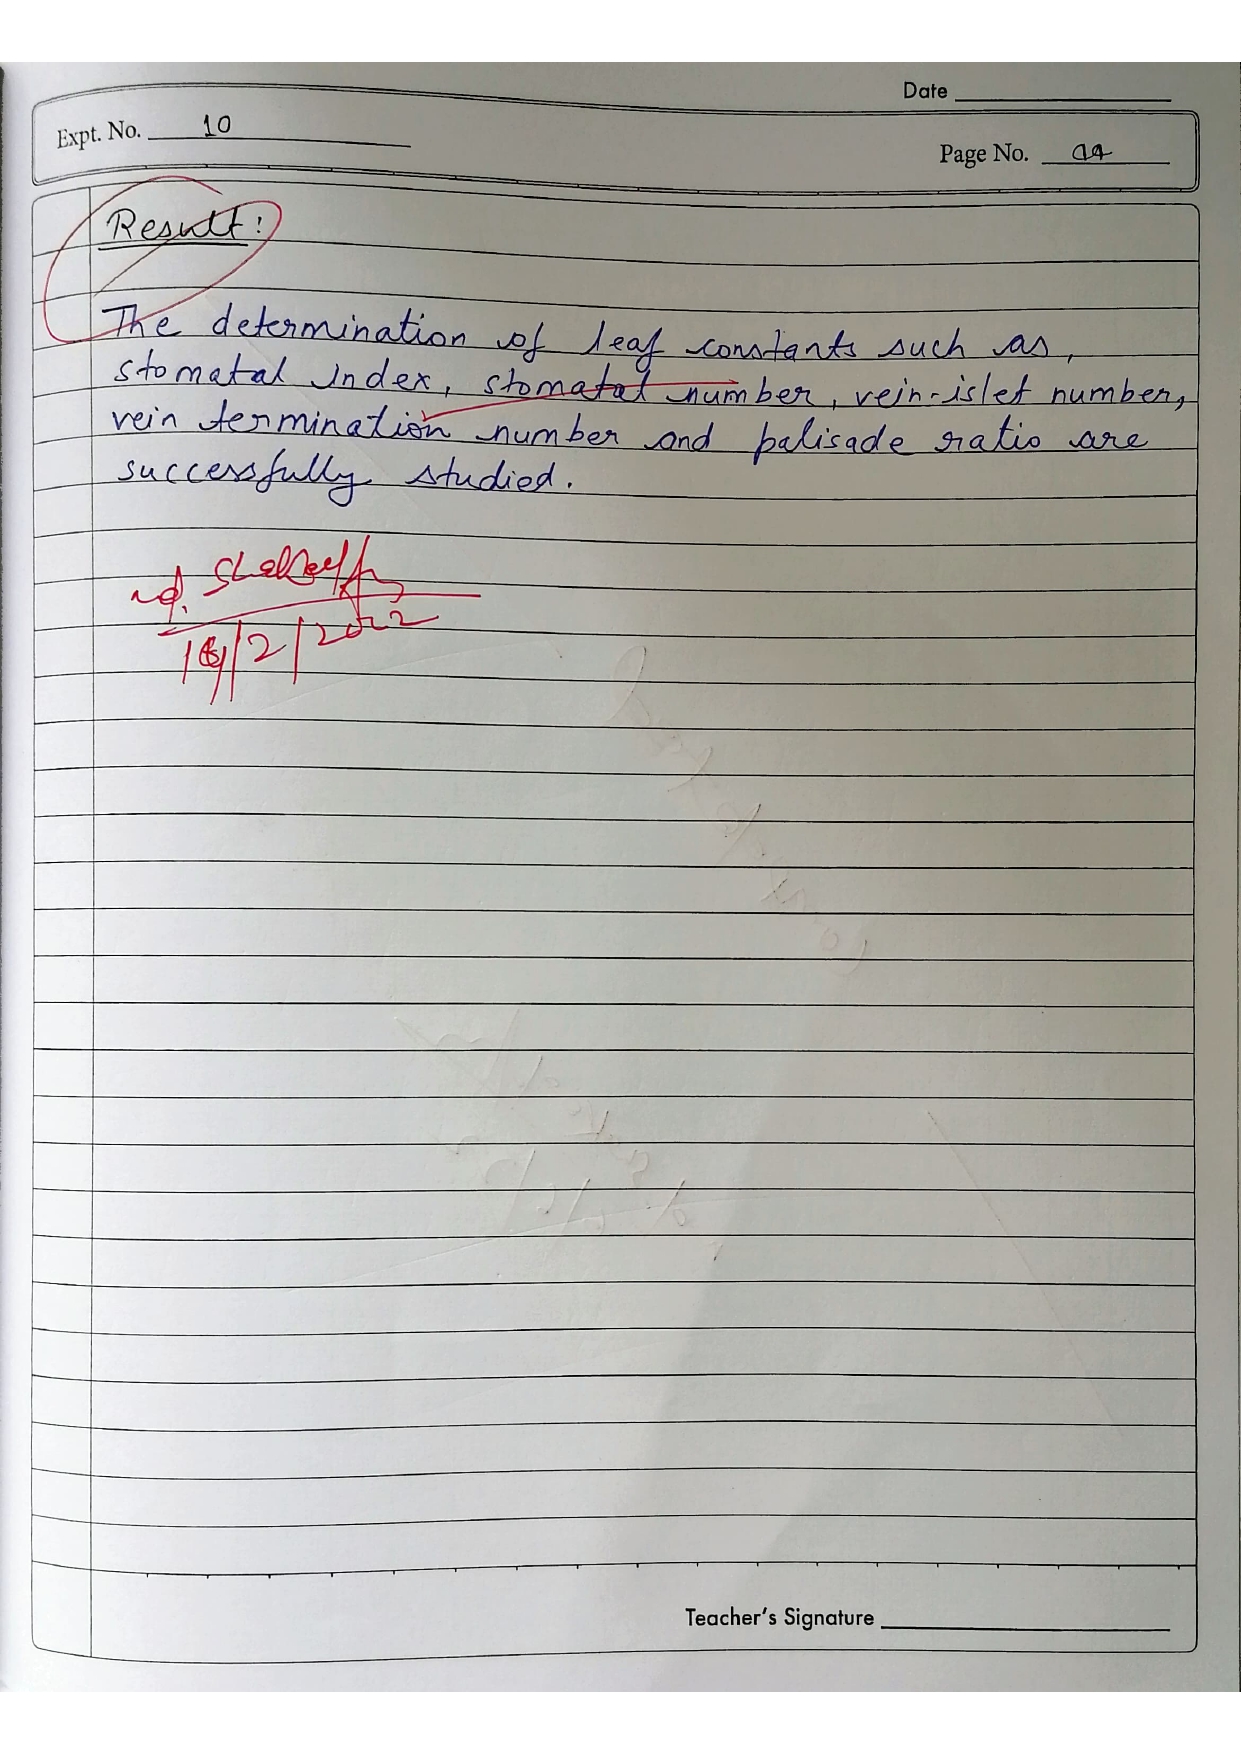 Date
Expt. No. 10
Page No.
Result:
The determination of leaf constants such as,
stomatal index, stomatal number, vein-islet number,
vein termination number and palisade ratio are
successfully studied.
/2/2022
Teacher's Signature